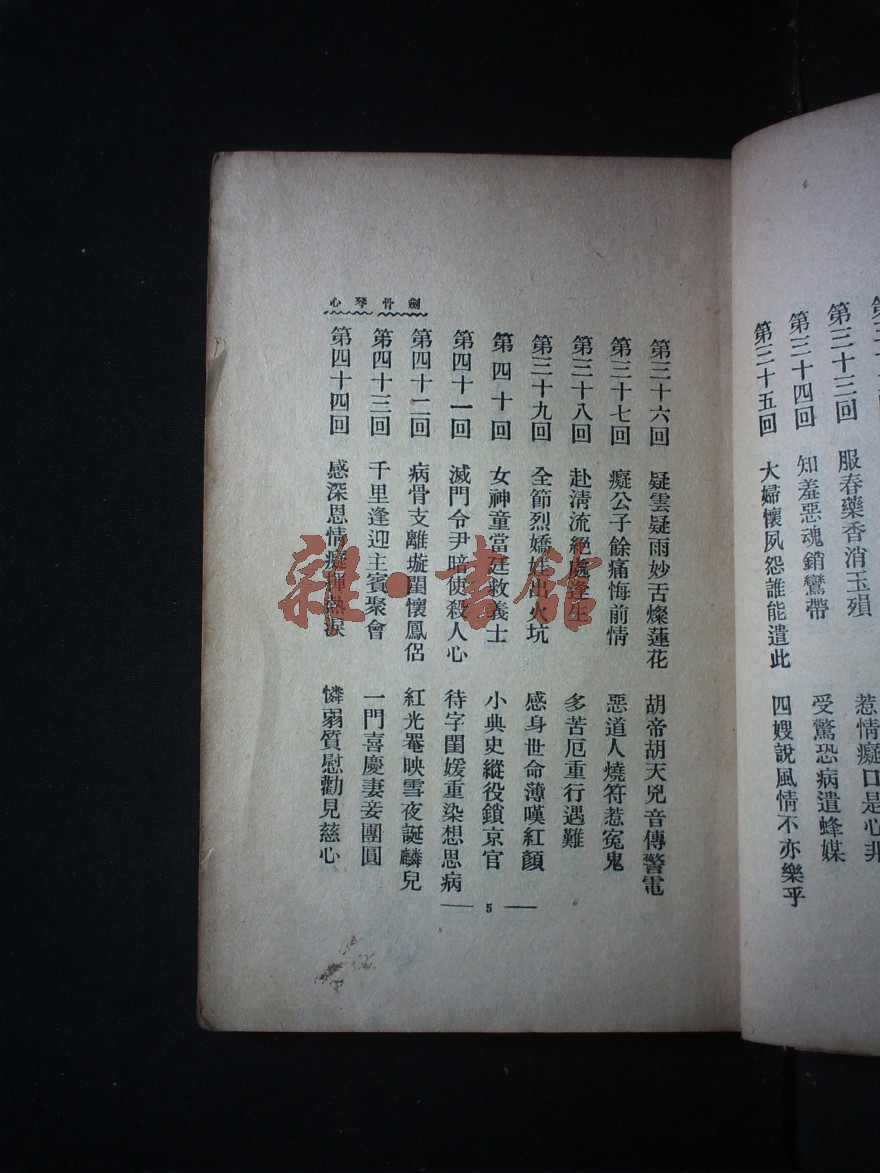 第三十三回　服春藥香消玉殞　惹情癡口是心非
第三十四回　知羞惡魂銷鸞帶　受驚恐病遣蜂媒
第三十五回　大婦懷夙怨誰能遣此　四嫂說風情不亦樂乎
劍骨琴心
第三十六回　疑雲疑雨妙舌燦蓮花　胡帝胡天兇音傳警電
第三十七回　癡公子餘痛悔前情　惡道人燒符惹冤鬼
第三十八回　赴淸流絕處逢生　多苦厄重行遇難
第三十九回　全節烈嬌娃出火坑　感身世命薄嘆紅顏
第四十回　女神童當廷救義士　小典史縱役鎖京官
第四十一回　滅門令尹暗使殺人心　待字閨媛重染想思病
第四十二回　病骨支離璇閨懷鳳侶　紅光罨映雪夜誕麟兒
第四十三回　千里逢迎主賓聚會　一門喜慶妻妾團圓
第四十四回　感深恩情癡揮熱淚　憐弱質慰勸見慈心
5
雜·書館